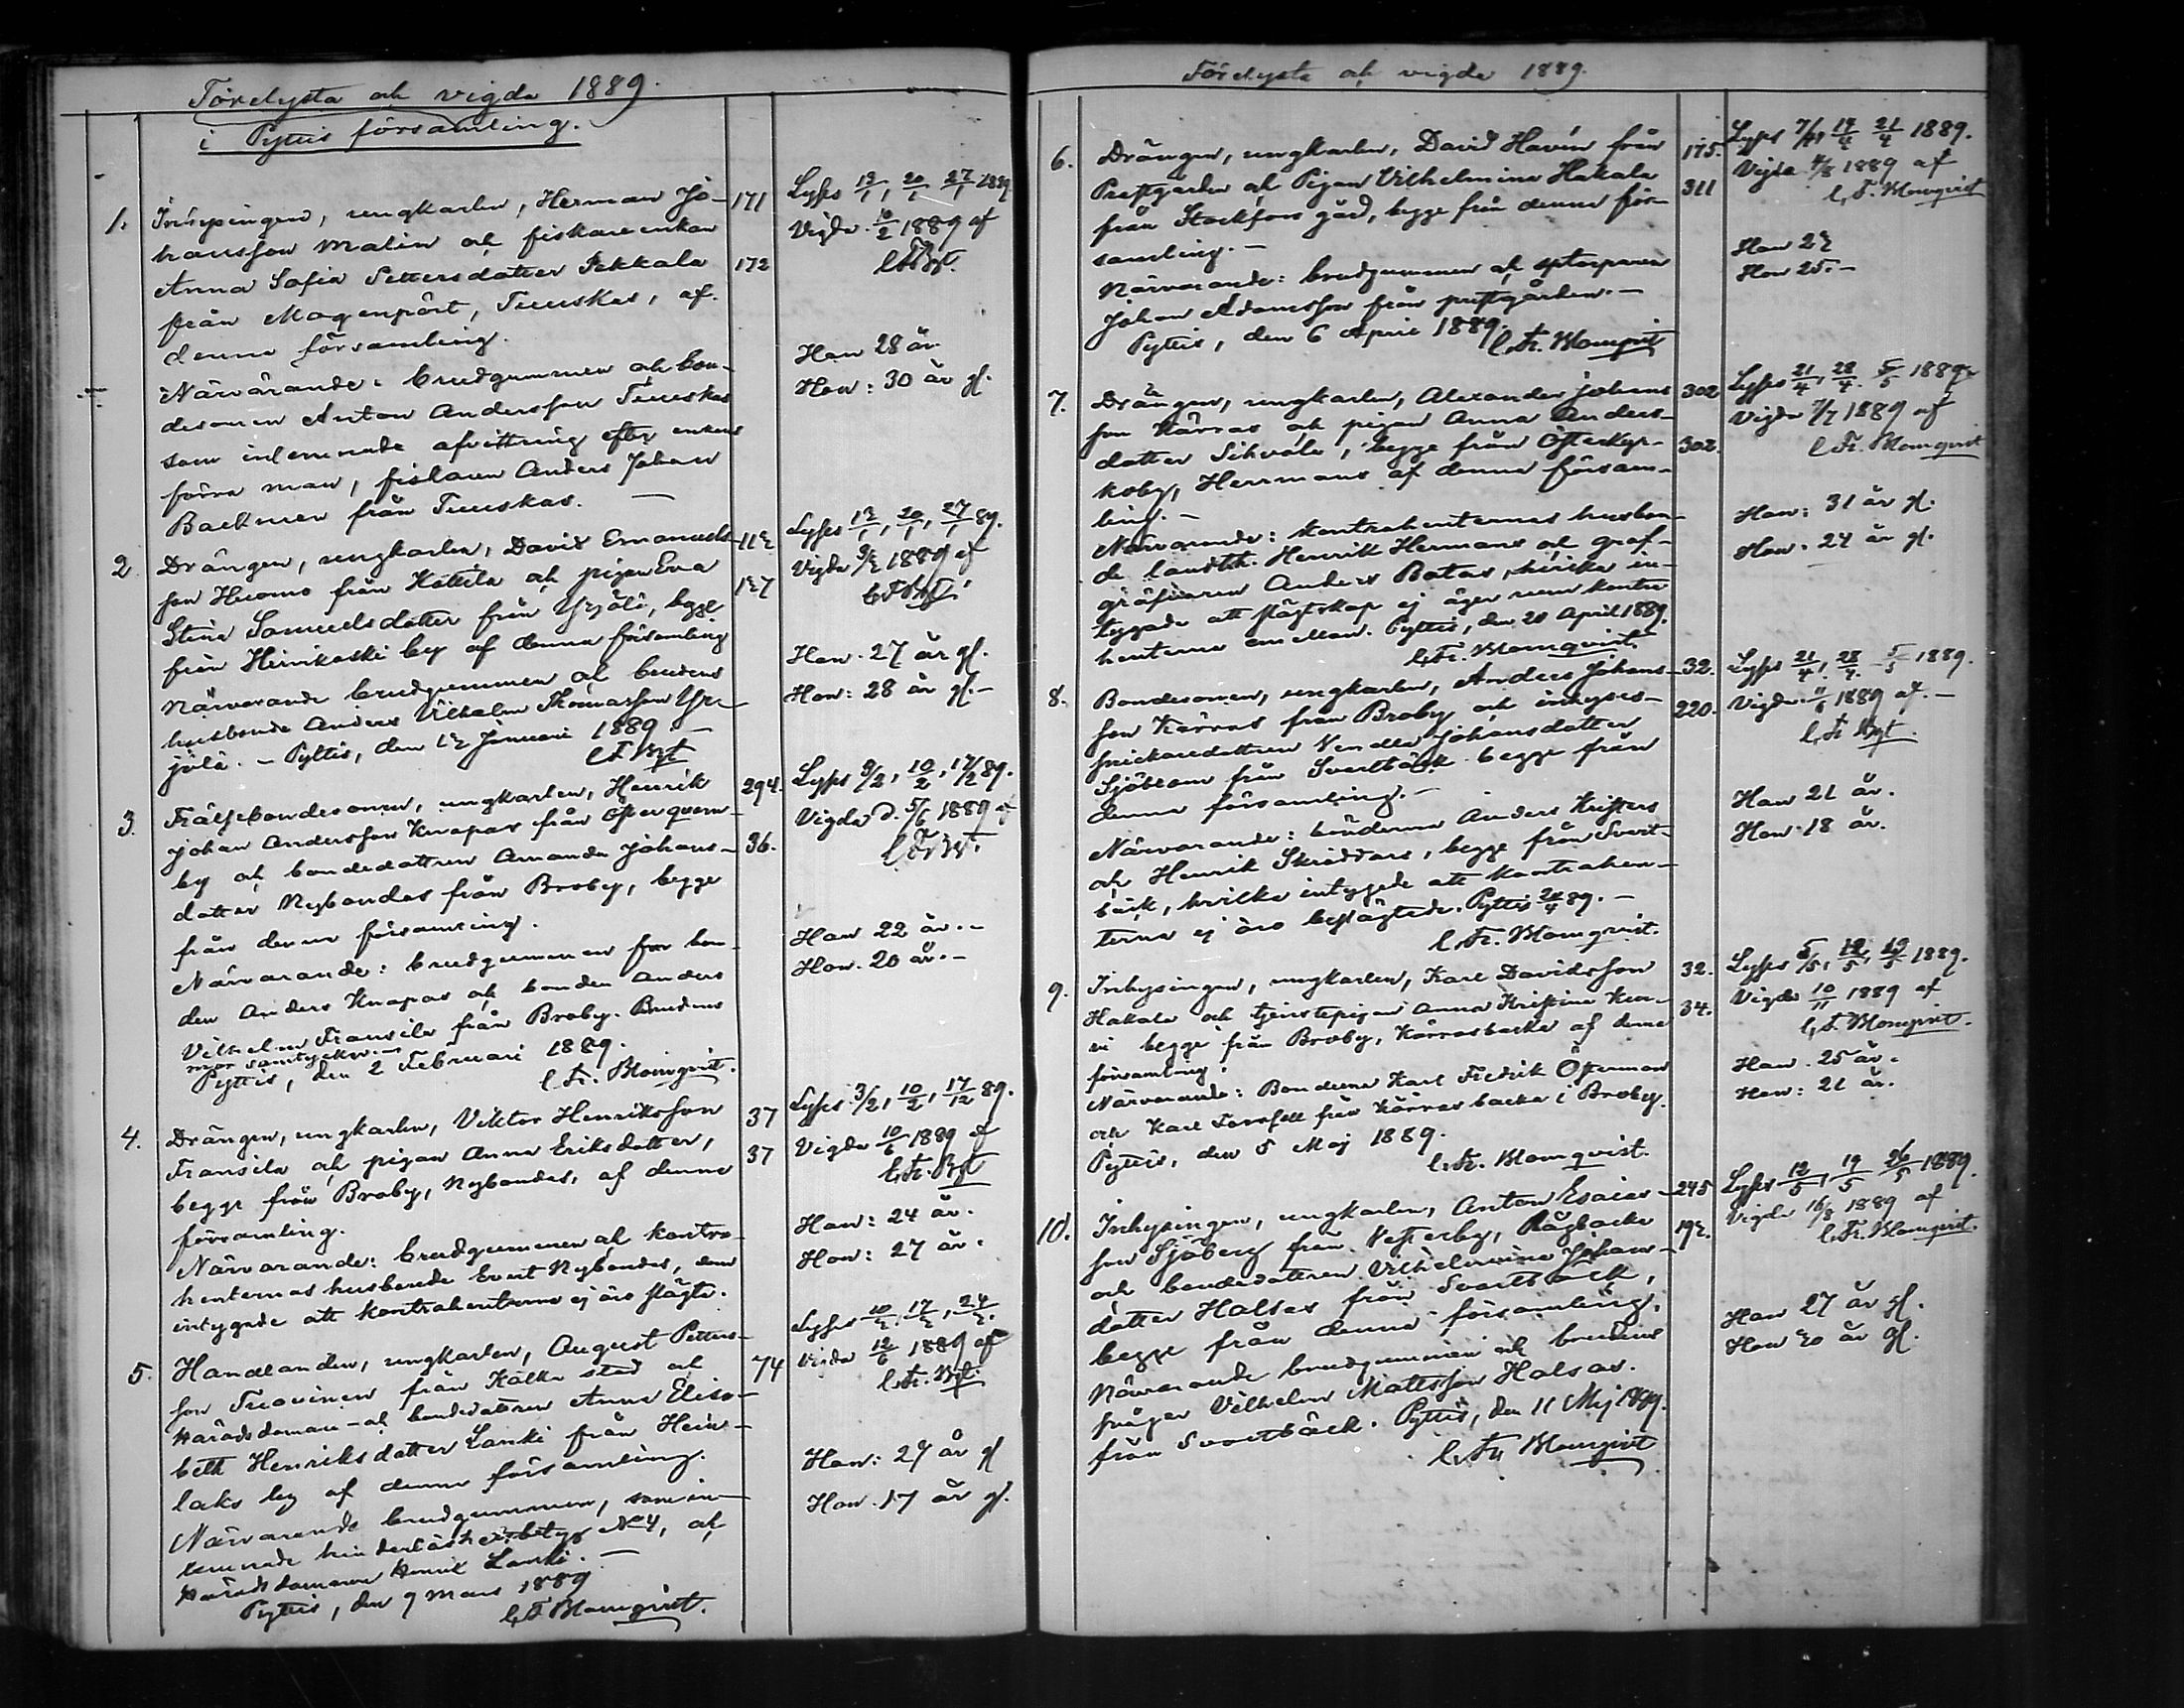 Förelysta och vigda 1889.
i Pyttis församling.
1. Inhysingen, ungkarlen, Herman Jo- 171
hansson Malin och fiskareenkan
Anna Sofia Pettersdotter Pekkala 172
från Mogenpört, Tuuskas, af
denna församling.
Närvarande: brudgummen och bon-
desonen Anton Andersson Tuuskas
som inlemnade afvittring efter enkans
förra man, fiskaren Anders Johan
Backman från Tuuskas. —
Lyses 13/1, 20/1, 27/1 1889
Vigda 10/2 1889 af
Han 28 år
Hon: 30 år gl.
2 Drängen, ungkarlen, David Emanuels-
son Huomo från Kattila och pigan Eva
Stina Samuelsdotter från Yrjölä, begge
från Hinkaski by af denna församling
Närvarande brudgummen och brudens
husbonde Anders Vilhelm Thomasson Yr-
jölä. – Pyttis, den 12 Januari 1889 –
C F Bqt
Lyses 13/1, 20/1, 27/1 89.
Vigda 1889 af
Han. 27 år gl.
Hon: 28 år gl. –
3. Frälsebondesonen, ungkarlen, Henrik 294.
Johan Andersson Knapas från Österqvarn-
by och bondedottren Amanda Johans- 36.
dotter Nybondas från Broby, begge
från denna församling.
Närvarande: brudgummen far bon-
den Anders Knapas och bonden Anders
Vilhelm Fransila från Broby. Brudens
mor samtycker. —
Pyttis, den 2 Februari 1889.
C. Fr. Blomqvist.
Lyses 3/2, 10/2, 17/2 89.
Vigda d. 5/6 1889 af
Han 22 år. –
Hon. 20 år. –
4. Drängen, ungkarlen, Viktor Henriksson 37
Fransila och pigan Anna Eriksdotter, 37
begge från Broby, Nybondas, af denna
församling.
Närvarande: brudgummen och kontra-
henternas husbonde Evert Nybondas, som
intygade att kontrahenterna ej äro slägte.
Lyses 3/2, 10/2, 17/12 89.
Vigda 10/6 1889 af
C. Fr. Bqt
Han: 24 år.
Hon: 27 år.
5. Handlanden, ungkarlen, August Petters-
son Tuovinen från Kotka stad och 74
Häradsdomare- och bondedottren Anna Elisa-
beth Henriksdotter Lanki från Hein-
laks by af denna församling.
Närvarande brudgummen, som in-
lemnade hinderlöshetsbetyg No 4, och
Häradsdomaren Henrik Lanki. —
Pyttis, den 9 Mars 1889
C. F. Blomqvist.
Lyses 10/3, 17/3, 24/3.
Vigda 12/6 1889 af
C. Fr. Bqt.
Han: 27 år gl
Hon. 17 år gl.
Förelysta och vigda 1889.
6. Drängen, ungkarlen, David Havén från 175.
Prestgården och Pigan Vilhelmina Hakala 311
från Stockfors gård, begge från denna för-
samling. –
Närvarande: brudgummen och
Johan Adamsson från prestgården. –
Pyttis, den 6 April 1889.
C. Fr. Blomqvist
Lyses 7/4, 14/4 21/4 1889.
Vigda 1889 af
C. F. Blomqvist
Hon 25. –
7. Drängen, ungkarlen, Alexander Johans 302
son Kärras och pigan Anna Anders-
dotter Sihvola, begge från Österkyr- 302.
koby, Hermans af denna församl-
ling. –
Närvarande: Kontrahenternas husbon-
de landtbr. Henrik Hermans och graf-
gräfvaren Anders Botas, hvilka in-
tygade att slägtskap ej äger rum kontra
henterna emellan. Pyttis, den 20 April 1889.
C. Fr. Blomqvist.
Lyses 21/4, 28/4, 5/5 1889
Vigda 7/7 1889 af
C. Fr. Blomqvist
Han: 31 år gl.
Hon. 24 år gl.
8. Bondesonen, ungkarlen, Anders Johans- 32.
son Kärras från Broby och inhyses- 220.
snickaredottren Vendla Johansdotter
Sjöblom från Svartbäck begge från
denna församling. –
Närvarande: bönderna Anders Kristers
och Henrik Skräddars, begge från Svart-
bäck, hvilka intygade att kontrahen-
terna ej äro beslägtade. Pyttis 20/4 89. –
C. Fr. Blomqvist.
Lyses 21/4, 28/4 5/5 1889.
Vigda 1889 af. –
C. Fr. Bqt.
Han 21 år.
Hon. 18 år.
9. Inhysingen, ungkarlen, Karl Davidsson 32.
Hakala och tjenstepigan Anna Kristina 34.
begge från Broby, Kärrasbacka af denna
församling.
Närvarande: Bönderna Karl Fredrik Österman
och Karl från Kärrasbacka i Broby.
Pyttis, den 5 Maj 1889.
C. Fr. Blomqvist.
Lyses 5/5, 12/5, 19/5 1889.
Vigda 10/11 1889 af
C. F. Blomqvist.
Han. 25 år.
Hon: 21 år.
10. Inhysingen, ungkarlen, Anton Esaias- 245
son Sjöberg från Vesterby, Rågbacka 192.
och bondedottren Vilhelmina Johans-
dotter Halsas från Svartbäck,
begge från denna församling.
Närvarande brudgummen och brudens
svåger Vilhelm Mattsson Halsas.
från Svartbäck. Pyttis, den 11 Maj 1889.
C. Fr. Blomqvist
Lyses 12/5, 19/5 26/5 1889.
Vigda 16/8 1889 af
C. Fr. Blomqvist.
Han 27 år gl.
Hon 20 år gl.